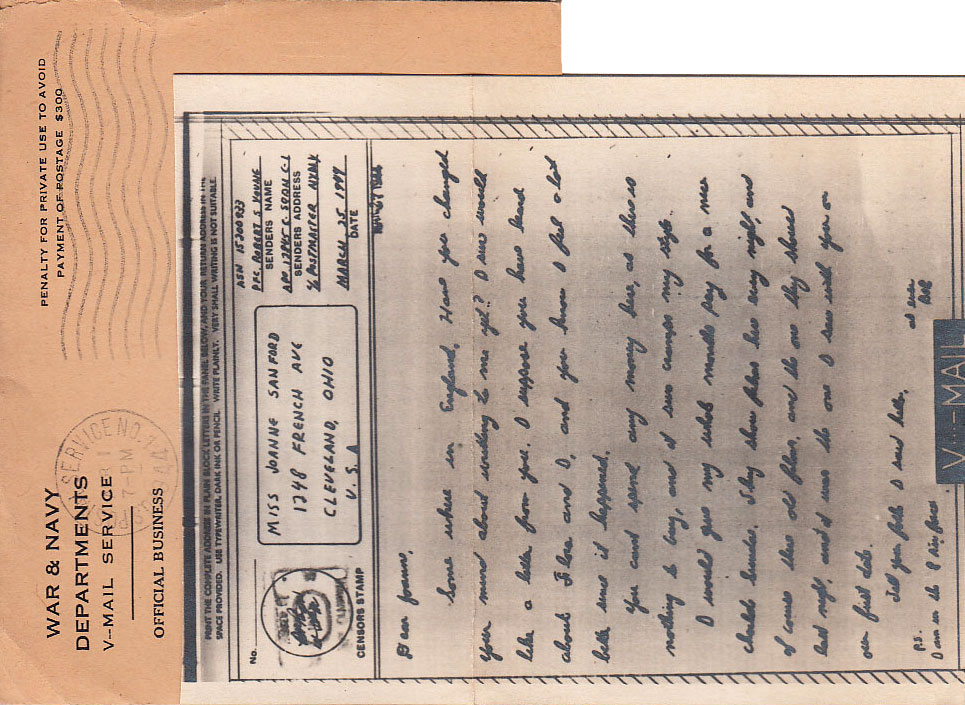 WAR & NAVY
DEPARTMENTS
V--MAIL SERVICE
OFFICIAL BUSINESS
PENALTY FOR PRIVATE USE TO AVOID
PAYMENT OF POSTAGE $300
SERVICE NO. 
7-PM
PRINT THE COMPLETE ADDRESS IN PLAIN BLOCK LETTERS IN THE PANEL BELOW, AND YOUR RETURN ADDRESS IN THE
SPACE PROVIDED. USE TYPEWRITER, DARK INK OR PENCIL. WRITE PLAINLY. VERY SMALL WRITING IS NOT SUITABLE.
No.
CENSORS STAMP
MISS JOANNE SANFORD
1748 FRENCH AVE
CLEVELAND, OHIO
U. S. A
ASN 15200933
PFC. ROBERT S YOUNG
SENDERS NAME
SENDERS ADDRESS
% POSTMASTER NYNY
MARCH 25 1944
DATE
Dear Joann,
Some where in England. Have you changed
your mind about writting to me yet? I sure would
like a letter from you. I suppose you have heard
about Flora and I, and you know I feel a lot
better since it happened.
You cant spend any money here, as there is
nothing to buy, and it sure cramps my style.
I would give my whole months pay for a nice
chocolate Sundae. They show films here every night, and
of course there old films, and the one they showed
last night, and it was the one I saw with you on
our first date.
Tell your folks I said hello,
as ever
BOB
P.S.
I am in the 8 Air force
V--MAIL